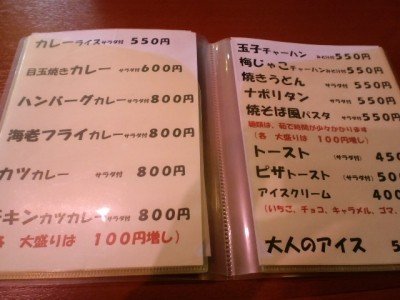 カレーライス サラダ付 550円
目玉焼きカレー サラダ付 600円
ハンバーグカレー サラダ付 800円
海老フライカレー サラダ付 800円
カツカレー サラダ付 800円
キンカツカレー サラダ付 800円
大盛りは 100円増し）
玉子チャーハン みそ汁付 550円
梅じゃこチャーハン みそ汁付 550円
焼きうどん サラダ付 550円
ナポリタン サラダ付 550円
焼そば風パスタ サラダ付 550
麺類は、茹で時間が少々かかります
（各 大盛りは 100円増し）
トースト （サラダ付） 450
ピザトースト （サラダ付） 500
アイスクリーム 400
（いちご、チョコ、キャラメル、ゴマ、
大人のアイス